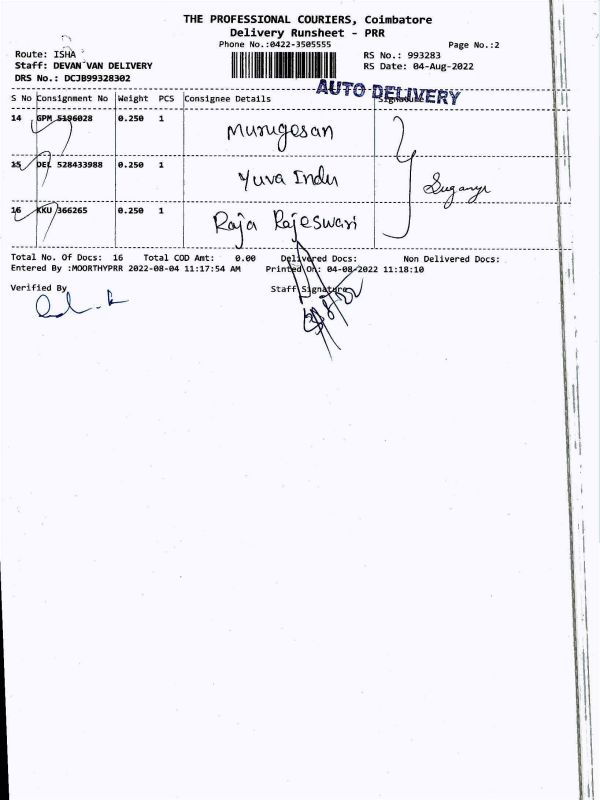 THE PROFESSIONAL COURIERS, Coimbatore
Delivery Runsheet - PRR
Phone No.:0422-3505555 Page No.:2
Route: ISHA RS No.: 993283
Staff: DEVAN VAN DELIVERY RS Date: 04-Aug-2022
DRS No.: DCJB99328302
AUTO DELIVERY
S No Consignment No Weight PCS Consignee Details Signature
14 GPM 5196028 0.250 1 Murugesan
15 DEL 528433988 0.250 1 Yuva Indu
Suganya
16 KKU 366265 0.250 1 Raja Rajeswari
Total No. Of Docs: 16 Total COD Amt: 0.00 Delivered Docs: Non Delivered Docs:
Entered By :MOORTHYPRR 2022-08-04 11:17:54 AM Printed On: 04-08-2022 11:18:10
Verified By Staff Signature